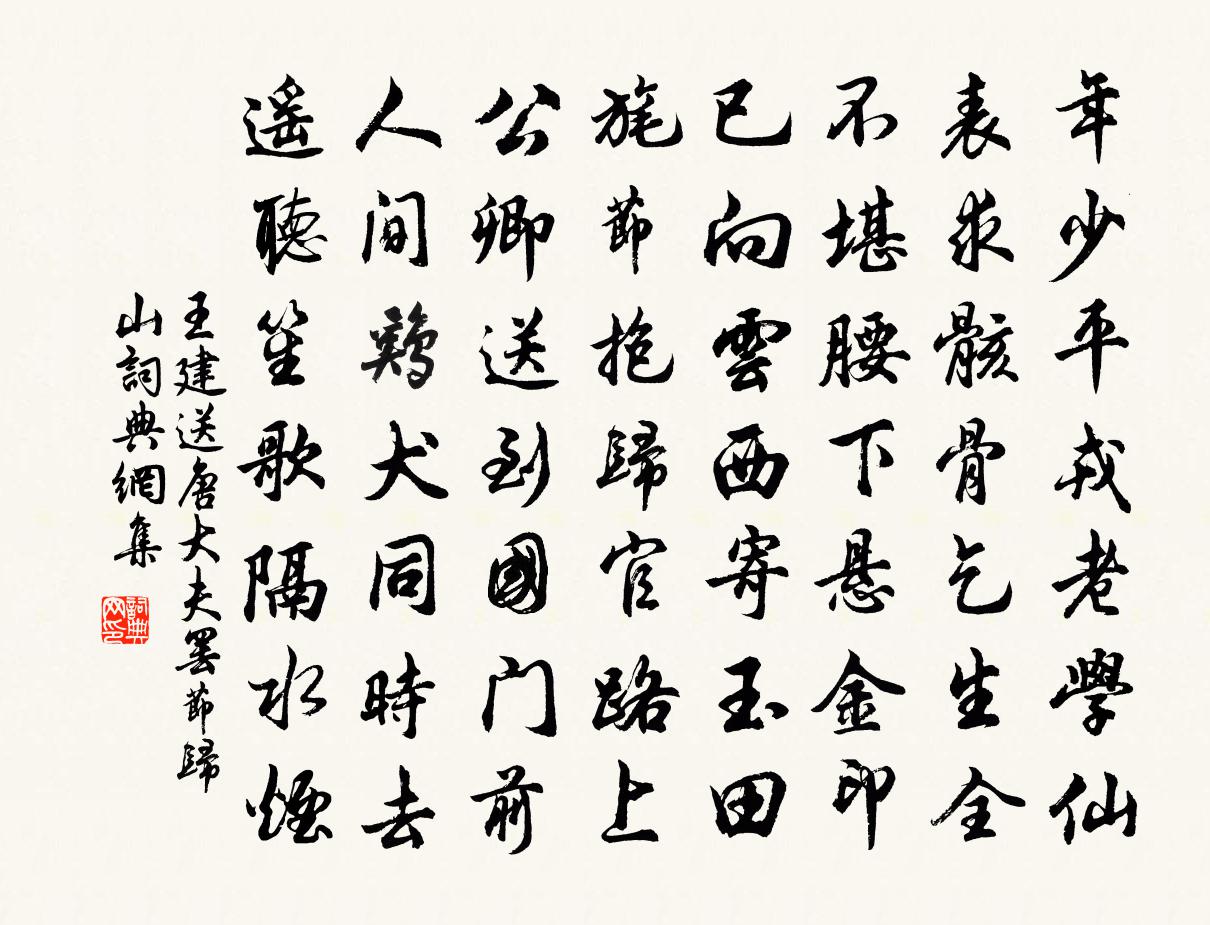 年少平戎老學仙
表求骸骨乞生全
不堪腰下悬金印
已向雲西寄玉田
旄節抱歸官路上
公卿送到國门前
人间鷄犬同時去
遥聽笙歌隔水煙
王建送唐大夫罢節歸
山詞典網集
詞典
网印